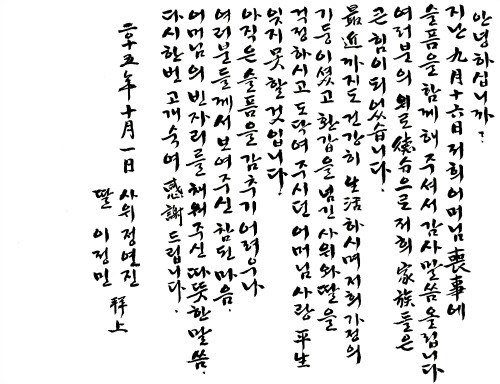 안녕하십니까?
지난 九月十六日 저희 어머님 喪事에
슬픔을 함께해 주셔서 감사말씀 올립니다
여러분의 위로 德分으로 저희 家族들은
큰 힘이 되었습니다.
最近까지도 건강히 生活하시며 저희 가정의
기둥이셨고 환갑을 넘긴 사위와 딸을
걱정하시고 도닥여 주시던 어머님 사랑 平生
잊지 못할 것입니다.
아직은 슬픔을 감추기 어려우나
여러분들께서 보여주신 참된 마음.
어머님의 빈자리를 채워주신 따뜻한 말씀.
다시한번 고개숙여 感謝드립니다.
二千十五年 十月 一日
사위 정연진
딸 이정민 拜上